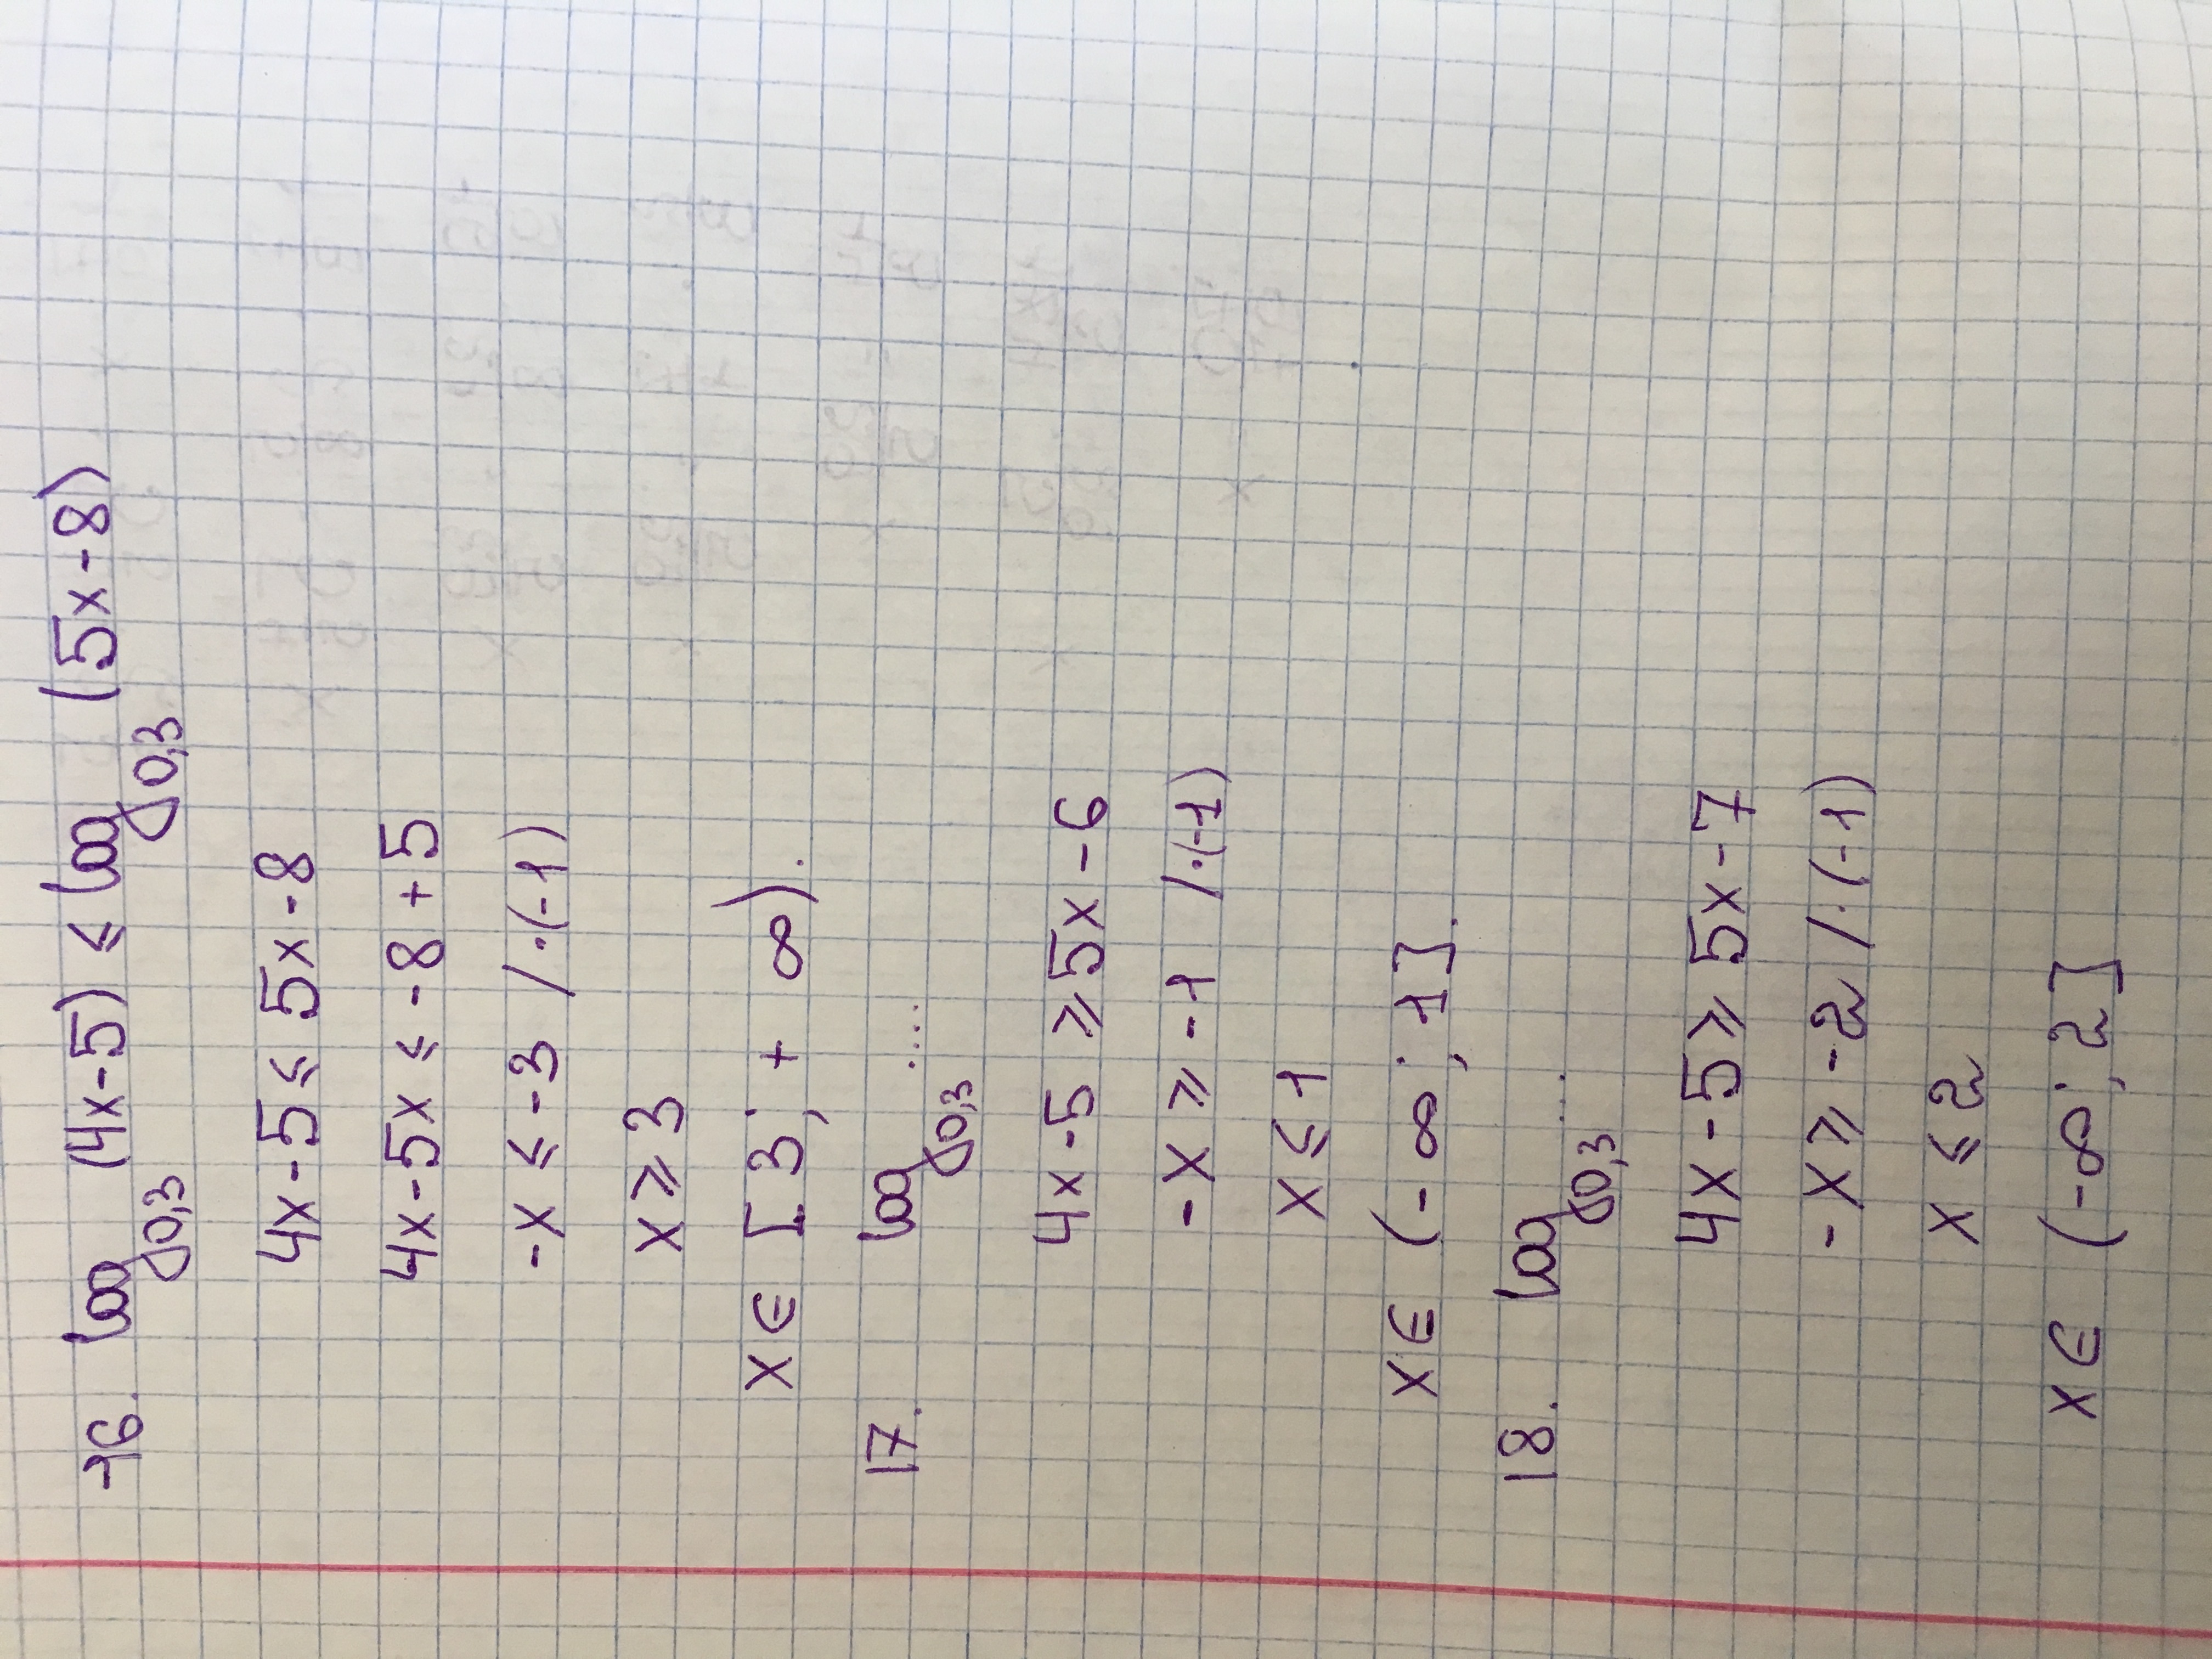 16. log₀,₃ (4x-5) ≤ log₀,₃ (5x-8)
4x-5 ≤ 5x-8
4x-5x ≤ -8+5
-x ≤ -3 /·(-1)
x ⩾ 3
x ∈ [3; +∞).
17. log₀,₃ ....
4x-5 ⩾ 5x-6
-x ⩾ -1 /·(-1)
x ≤ 1
x ∈ (-∞; 1].
18. log₀,₃ ...
4x-5 ⩾ 5x-7
-x ⩾ -2 /·(-1)
x ≤ 2
x ∈ (-∞; 2]